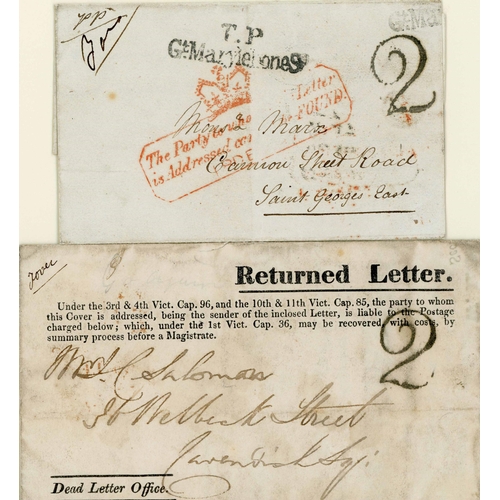 T.P
Gt. Marylebone St
Gt. Mar
2
The Party
Letter
is Addressed
FOUND
Monsr. Marx
Cannon Street Road
Saint Georges East
Returned Letter.
Under the 3rd & 4th Vict. Cap. 96, and the 10th & 11th Vict. Cap. 85, the party to whom
this Cover is addressed, being the sender of the inclosed Letter, is liable to the Postage
charged below; which, under the 1st Vict. Cap. 36, may be recovered, with costs, by
summary process before a Magistrate.
2
Solomon
36 Welbeck Street
Cavendish Sqr:
Dead Letter Office.